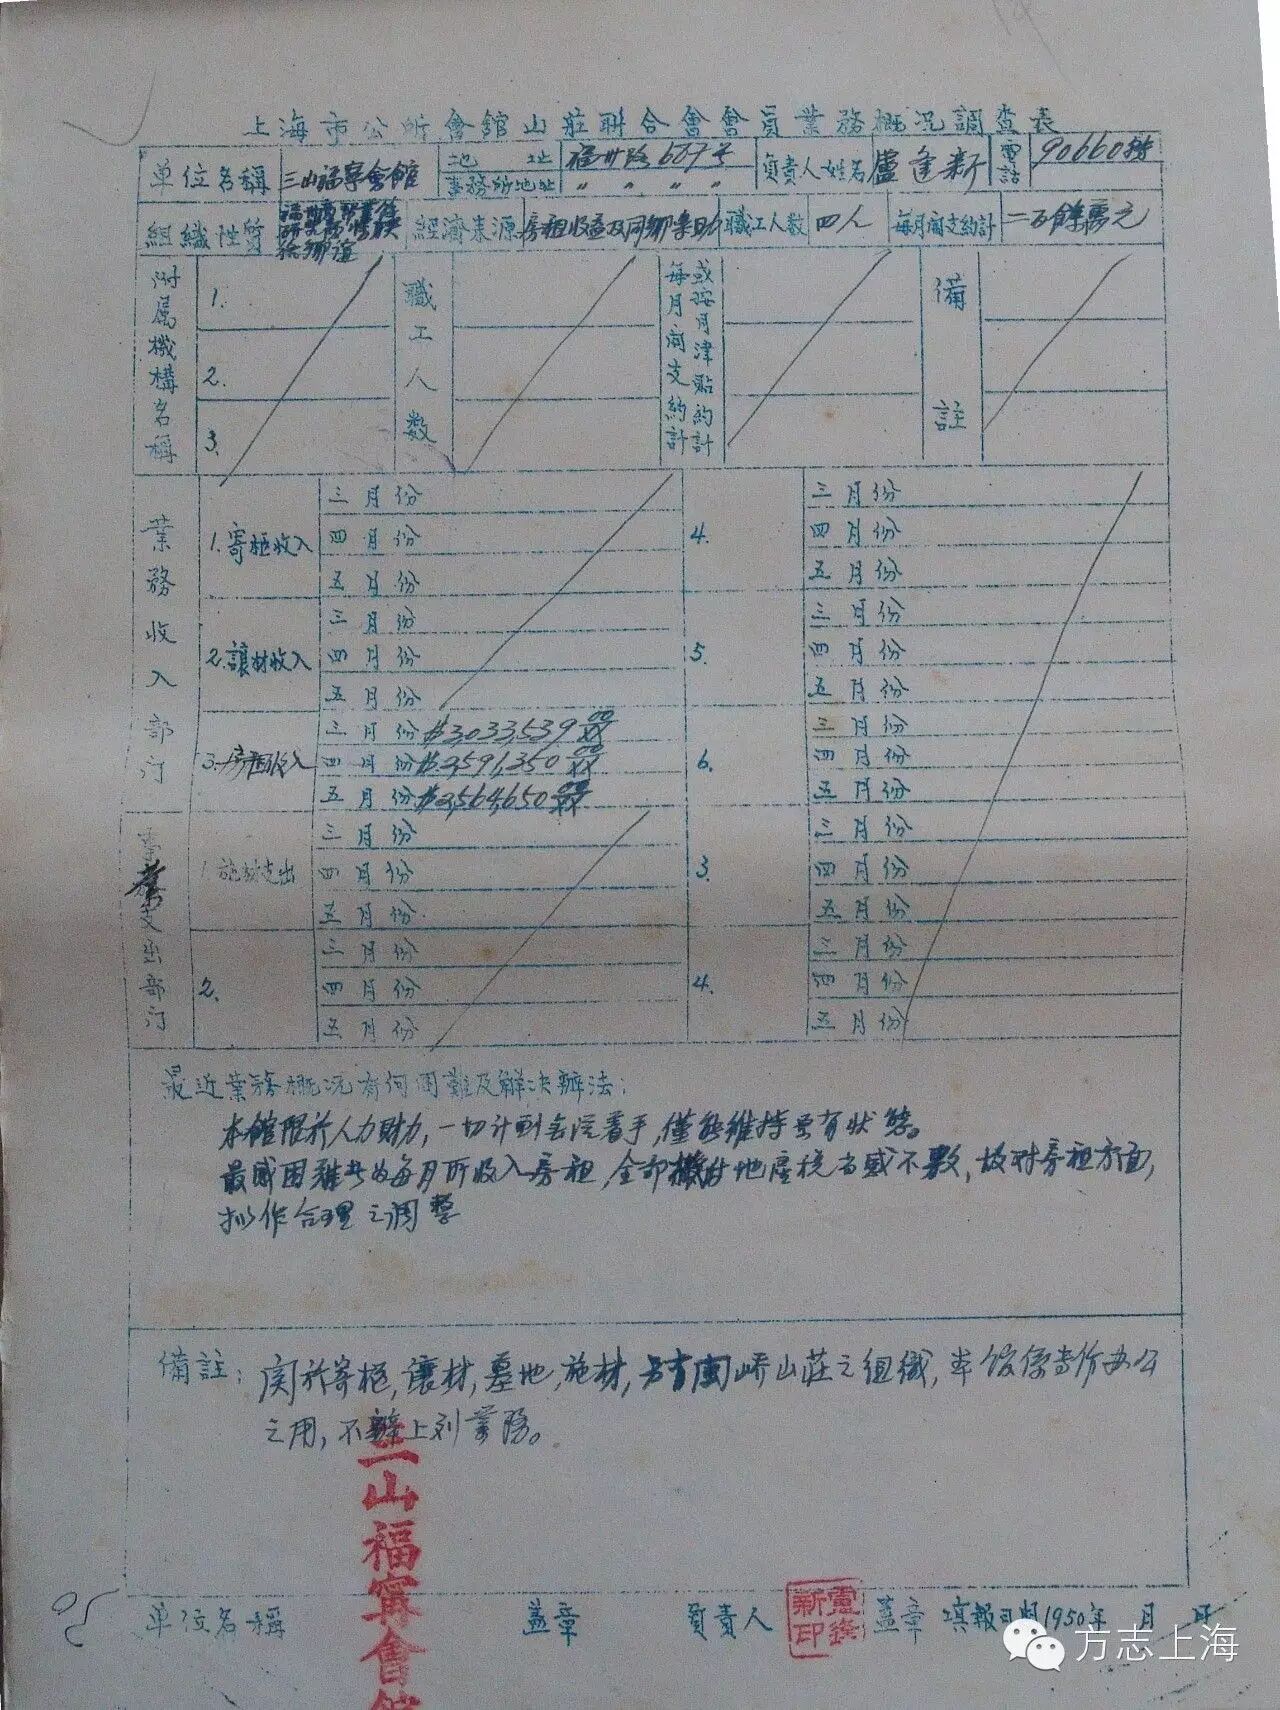 上海市公所會館山莊聯合會會員業務概况調查表
單位名稱 三山福寧會館 地址 福州路687号 負責人姓名 盧逢新 電話 90660轉
事務所地址 〃 〃 〃 〃
組織性質 經濟來源 房租收益及同鄉樂助 職工人数 四人 每月開支約計 二百餘萬元
附属機構名稱 1. 2. 3.
職工人数
每月開支約計或按月津貼約計
備註
業務收入部门
1.寄柩收入 三月份 四月份 五月份
2.讓材收入 三月份 四月份 五月份
3.房租收入 三月份 $3,033,539.00
四月份 $2,591,350.00
五月份 $2,564,650.00
4. 三月份 四月份 五月份
5. 三月份 四月份 五月份
6. 三月份 四月份 五月份
事業支出部门
1.施材支出 三月份 四月份 五月份
2. 三月份 四月份 五月份
3. 三月份 四月份 五月份
4. 三月份 四月份 五月份
最近業務概况有何困難及解决辦法：
本館限於人力財力，一切計劃無從着手，僅能維持原有狀態。
最感困難者為每月所收入房租，全部機付地產稅尚感不敷，故对房租方面，
拟作合理之調整
備註：関於寄柩，讓材，墓地，施材，另有闽峤山莊之組織，本館係專作办公
之用，不辦上列業務。
三山福寧會館
單位名稱 蓋章 負責人 蓋章 填報日期1950年 月 日
方志上海